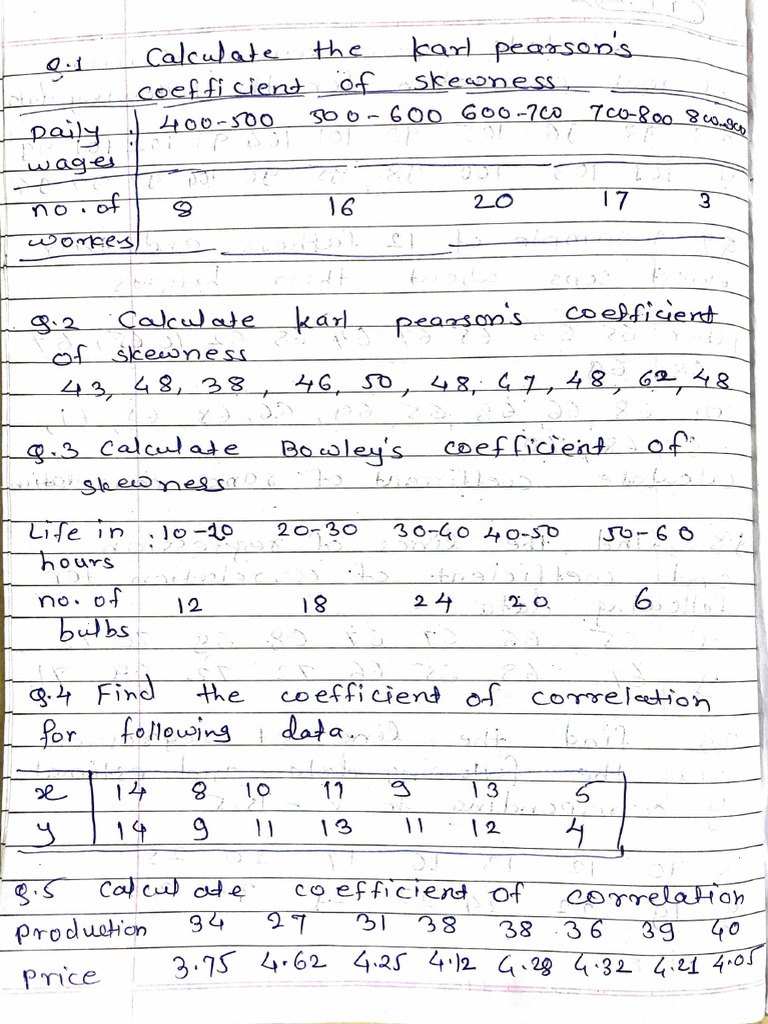 Q.1 Calculate the karl pearson's
coefficient of skewness.
Daily : 400-500 500-600 600-700 700-800 800-900
wages
no. of 8 16 20 17 3
workers
Q.2 Calculate karl pearson's coefficient
of skewness
43, 48, 38, 46, 50, 48, 47, 48, 62, 48
Q.3 Calculate Bowley's coefficient of
skewness
Life in : 10-20 20-30 30-40 40-50 50-60
hours
no. of 12 18 24 20 6
bulbs
Q.4 Find the coefficient of correlation
for following data.
x 14 8 10 11 9 13 5
y 14 9 11 13 11 12 4
Q.5 Calculate coefficient of correlation
production 34 27 31 38 38 36 39 40
price 3.75 4.62 4.25 4.12 4.28 4.32 4.21 4.05